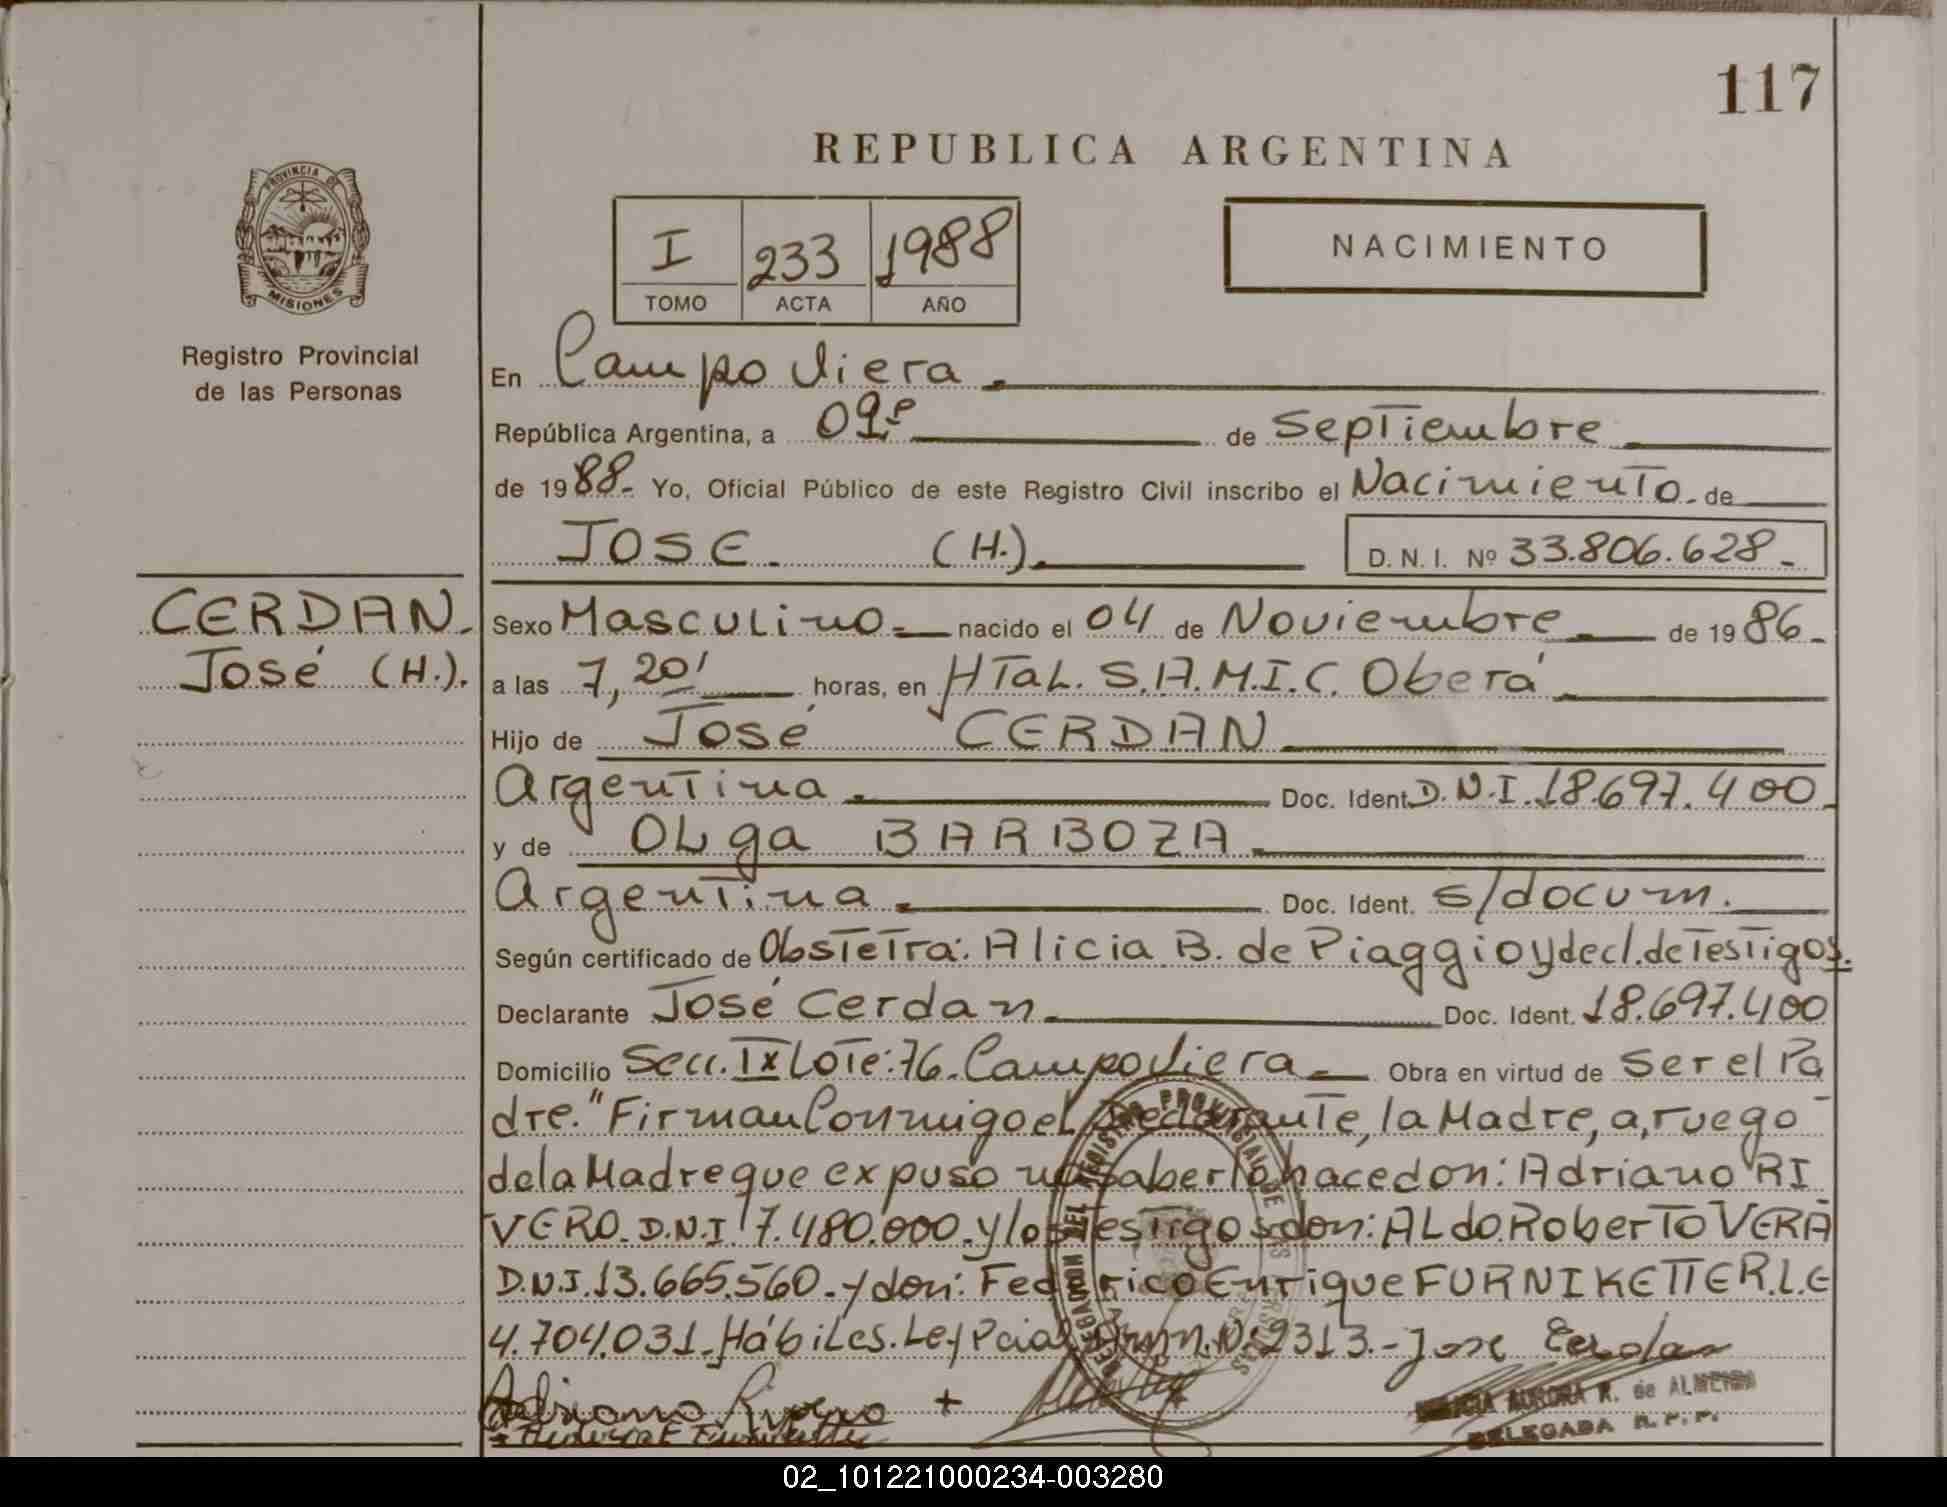 117
REPUBLICA ARGENTINA
PROVINCIA DE
MISIONES
Registro Provincial
de las Personas
I 233 1988
TOMO ACTA AÑO
NACIMIENTO
En Campo Viera.
República Argentina, a 09º de Septiembre
de 1988- Yo, Oficial Público de este Registro Civil inscribo el Nacimiento de
JOSE. (H.) D. N. I. Nº 33.806.628-
CERDAN.
José (H.).
Sexo Masculino.- nacido el 04 de Noviembre de 1986-
a las 7,20' horas, en HTal. S.A.M.I.C. Oberá
Hijo de José CERDAN
Argentina. Doc. Ident. D.N.I. 18.697.400
y de Olga BARBOZA.
Argentina. Doc. Ident. s/docum.
Según certificado de Obstetra: Alicia B. de Piaggio y decl. de Testigos.
Declarante José Cerdan. Doc. Ident. 18.697.400
Domicilio Secc. IX Lote: 76. Campo Viera. Obra en virtud de Ser el Pa
dre." Firman Conmigo el Declarante, la Madre, a, ruego
de la Madre que expuso no saberlo hace don: Adriano RI
VERO. D.N.I 7.480.000. y los Testigos don: ALdo Roberto VERA
D.N.I. 13.665.560. y don: Federico Enrique FURNIKETTER. L.E
4.704.031. Hábiles. Ley Pcial. Nº 2313.- Jose Cerdan
Adriano Rivero +
AURORA R. de ALMEIDA
DELEGADA R. P. P.
02_101221000234-003280